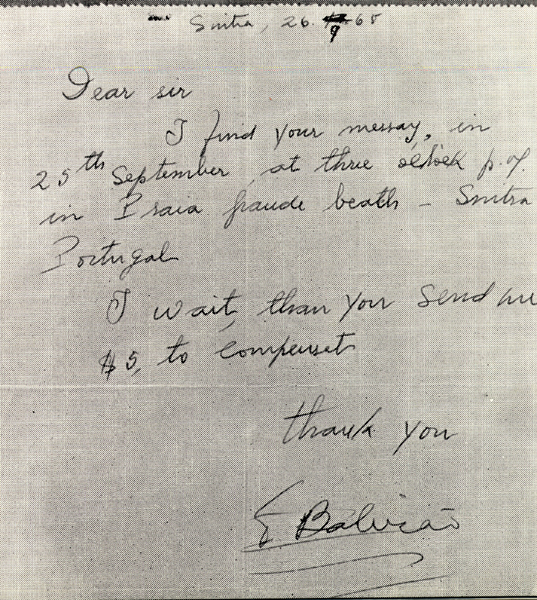 Sintra, 26. 9 65
Dear sir
I find your messay, in
25th September, at three oclock p.m.
in Praia graude beath - Sintra
Portugal
I wait, than you send me
$5, to compensate
thank you
E Balicão